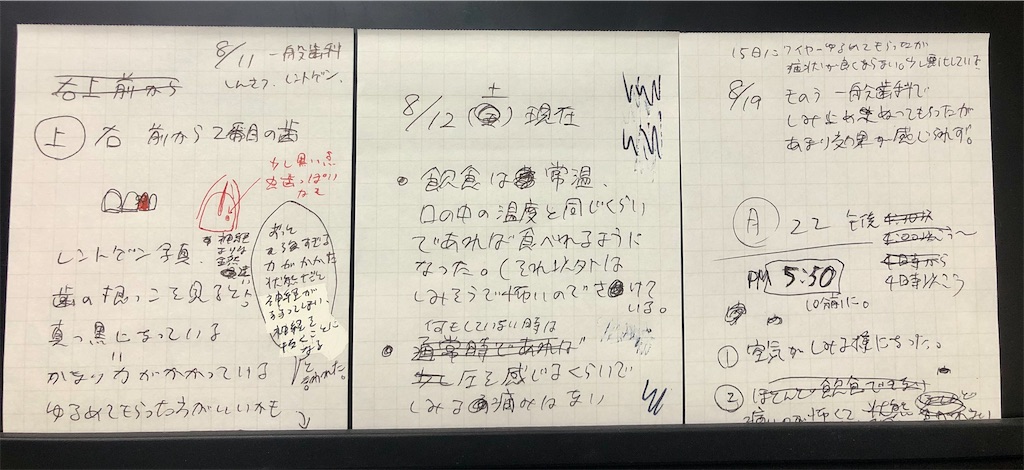 8/11 一般歯科
しんさつ、レントゲン、
右上前から
上 右 前から2番目の歯
少し黒い点
虫歯っぽい
かも
レントゲン写真、
歯の根っこを見ると、
真っ黒になっている
かなり力がかかっている
ゆるめてもらったほうがいいかも
ずっと
力がかかった
状態だと
神経が
しまい、
神経を
抜くことに
なる
と言われた。
8/12 (土) 現在
飲食は常温、
口の中の温度と同じくらい
であれば食べれるように
なった。(それ以外は
しみそうで怖いのでさけて
いる。
何もしていない時は
通常時であれば
少し圧を感じるくらいで
しみる痛みはない
15日にワイヤーゆるめてもらったが
症状が良くならない。少し悪化している
8/19 そのう一般歯科で
しみ止めぬってもらったが
あまり効果が感じられず。
月 22 午後
4時から
4時以こう
PM 5:50
10分前に。
① 空気がしみる様になった。
② ほとんど飲食できず
痛いのが怖くて